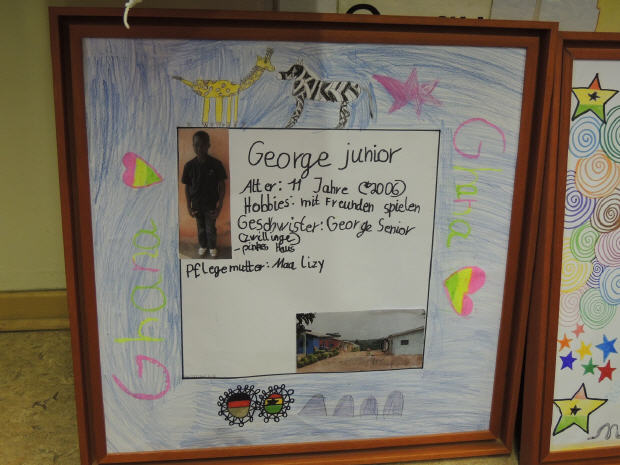 George junior
Alter: 11 Jahre (*2006)
Hobbies: mit Freunden spielen
Geschwister: George Senior
(zwillinge)
- pinkes Haus
Pflegemutter: Maa Lizy
Ghana
Ghana